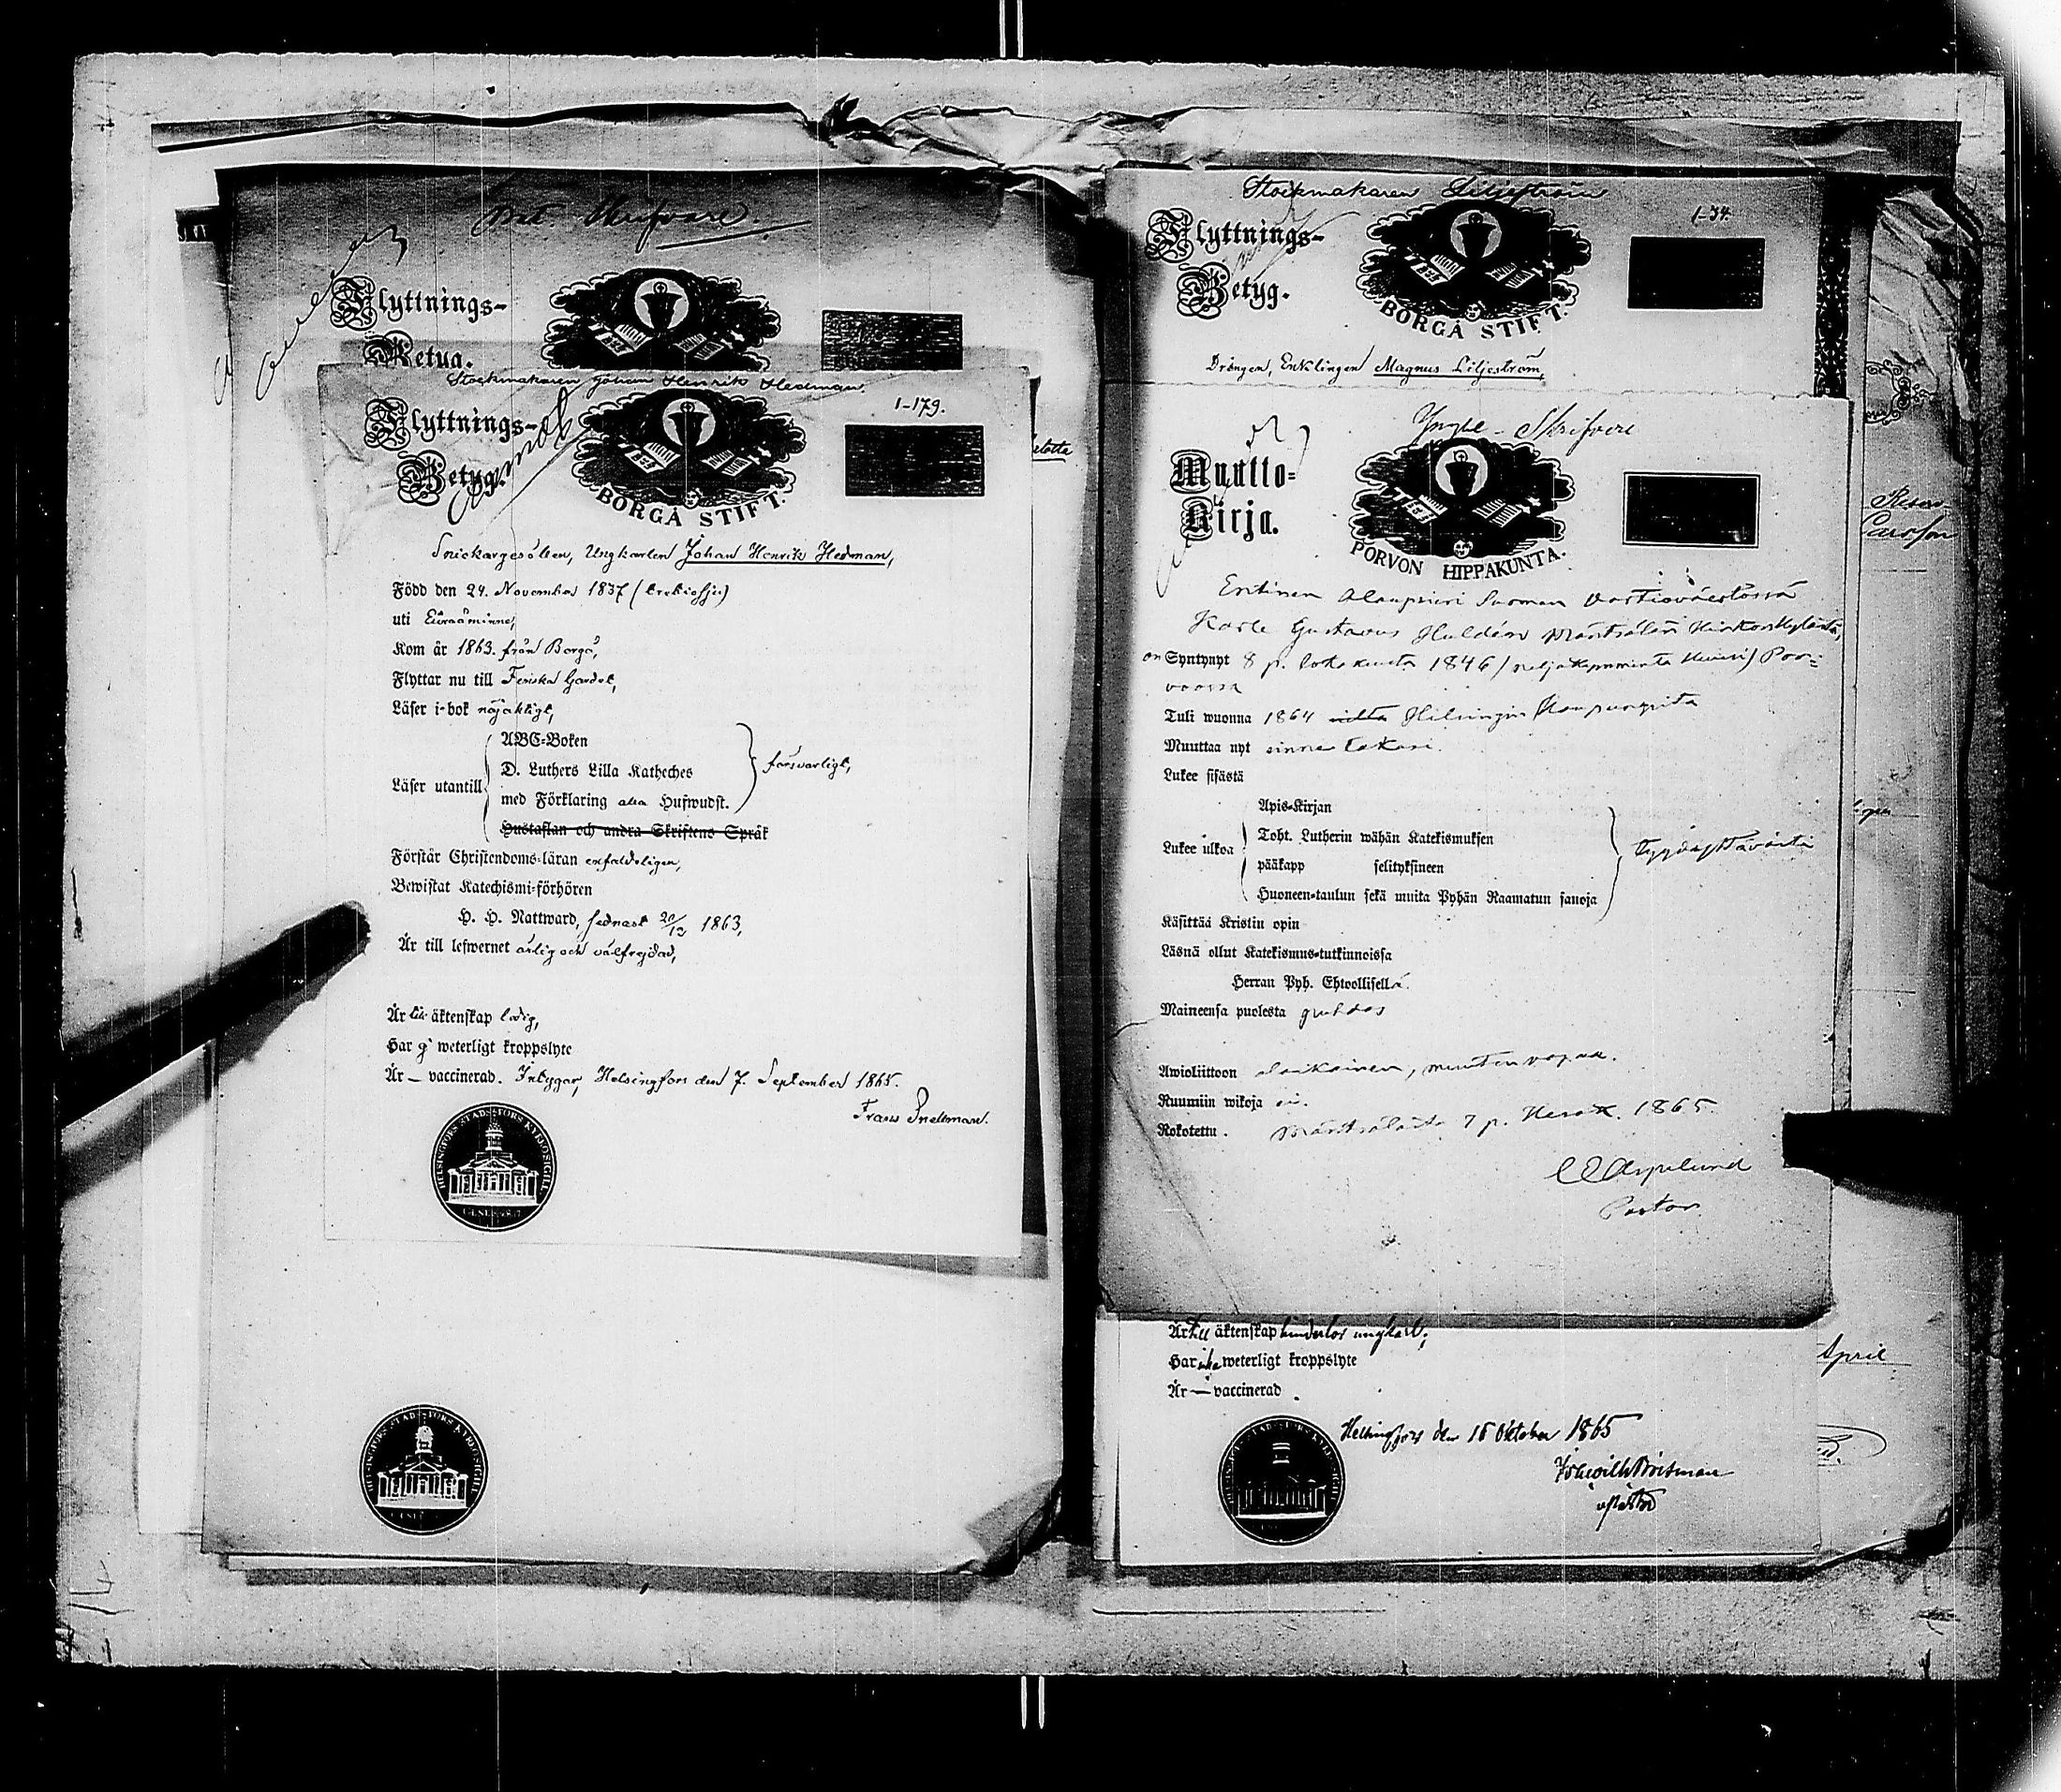 Bat. Skrifvare.
Flyttnings-
Betyg.
Stockmakaren Johan Henrik Hedman.
Flyttnings-
Betyg.
BORGÅ STIFT.
1-179.
Snickargesällen, Ungkarlen Johan Henrik Hedman,
Född den 24. November 1837
uti Euraåminne,
Kom år 1863. från Borgå,
Flyttar nu till Finska Gardet,
Läser i bok nöjaktigt,
Läser utantill
ABC-Boken
D. Luthers Lilla Katheches
med Förklaring utan Hufwudst.
försvarligt,
Hustaflan och andra Skriftens Språk
Förstår Christendoms-läran enfaldeligen,
Bewistat Katechismi-förhören
H. H. Nattward, sednast 20/12 1863,
Är till lefwernet ärlig och välfrejdad,
Är till äktenskap ledig,
Har ej weterligt kroppslyte
Är — vaccinerad. Intygar, Helsingfors den 7. September 1865.
Frans Snellman.
HELSINGFORS STADS-FÖRS KYRKOSIGILL
Stockmakaren Liljeström
Flyttnings-
Betyg.
BORGÅ STIFT.
1-34
Drängen, Enklingen Magnus Liljeström,
Yngre-Skrifvare
Muutto-
Kirja.
PORVON HIPPAKUNTA.
Entinen Alaupsieri Suomen Vartioväestössä
Karle Gustavus Huldén Mäntsälän
on Syntynyt 8 p. lokakuuta 1846 Por-
voossa
Tuli wuonna 1864 Helsingin Kaupungista
Muuttaa nyt sinne takasi.
Lukee sisästä
Lukee ulkoa
Apis-Kirjan
Toht. Lutherin wähän Katekismuksen
pääkapp selityksineen
Huoneen-taulun sekä muita Pyhän Raamatun sanoja
tyydyttävästi
Käsittää Kristin opin
Läsnä ollut Katekismus-tutkinnoissa
Herran Pyh. Ehtoollisella.
Maineensa puolesta puhdas
Awioliittoon alaikäinen, muuten vapaa.
Ruumiin wikoja ei.
Rokotettu. Mäntsälästä 7 p. Kesäk. 1865.
Pastor
Är till äktenskap hinderlös ungkarl,
Har icke weterligt kroppslyte
Är — vaccinerad.
Helsingfors den 16 Oktober 1865
April